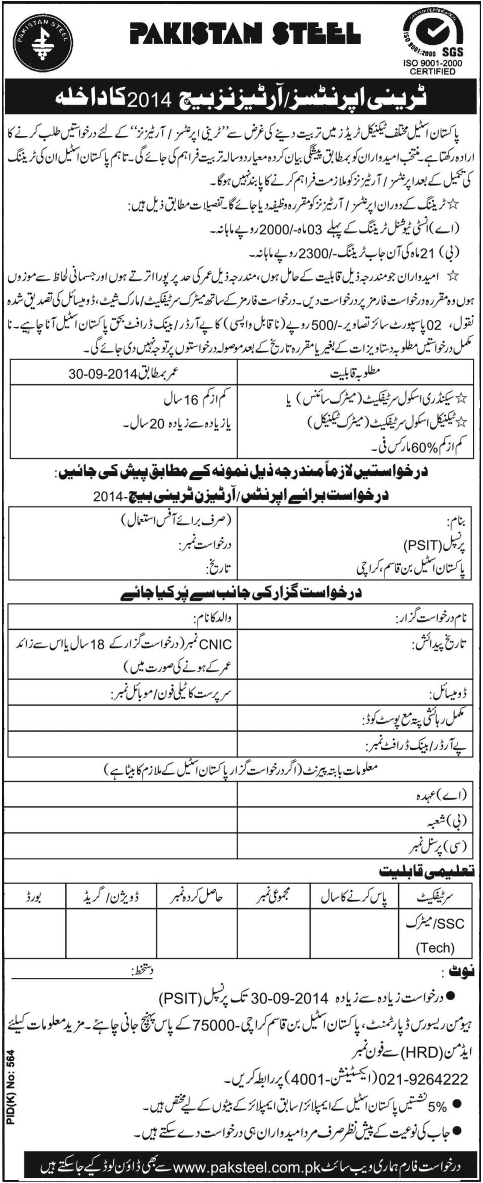 PAKISTAN STEEL
PAKISTAN STEEL
ISO 9001:2000
SGS
ISO 9001-2000
CERTIFIED
ٹرینی اپرنٹسز/آرٹیزنز بیچ 2014 کا داخلہ
پاکستان اسٹیل مختلف ٹیکنیکل ٹریڈز میں تربیت دینے کی غرض سے ”ٹرینی اپرنٹسز / آرٹیزنز“ کے لئے درخواستیں طلب کرنے کا
ارادہ رکھتا ہے۔ منتخب امیدواران کو بمطابق پیشگی بیان کردہ معیار دو سالہ تربیت فراہم کی جائے گی۔ تاہم پاکستان اسٹیل ان کی ٹریننگ
کی تکمیل کے بعد اپرنٹسز / آرٹیزنز کو ملازمت فراہم کرنے کا پابند نہیں ہوگا۔
☆ ٹریننگ کے دوران اپرنٹسز / آرٹیزنز کو مقررہ وظیفہ دیا جائے گا۔ تفصیلات مطابق ذیل ہیں:
(اے) انسٹی ٹیوشنل ٹریننگ کے پہلے 03 ماہ -/2000 روپے ماہانہ۔
(بی) 21 ماہ کی آن جاب ٹریننگ -/2300 روپے ماہانہ۔
☆ امیدواران جو مندرجہ ذیل قابلیت کے حامل ہوں، مندرجہ ذیل عمر کی حد پر پورا اترتے ہوں اور جسمانی لحاظ سے موزوں
ہوں وہ مقررہ درخواست فارمز پر درخواست دیں۔ درخواست فارمز کے ساتھ میٹرک سرٹیفکیٹ / مارکس شیٹ، ڈومیسائل کی تصدیق شدہ
نقول، 02 پاسپورٹ سائز تصاویر -/500 روپے (ناقابل واپسی) کا پے آرڈر / بینک ڈرافٹ بحق پاکستان اسٹیل آنا چاہیے۔ نا
مکمل درخواستیں مطلوبہ دستاویزات کے بغیر یا مقررہ تاریخ کے بعد موصولہ درخواستوں پر توجہ نہیں دی جائے گی۔
مطلوبہ قابلیت
عمر بمطابق 30-09-2014
☆ سیکنڈری اسکول سرٹیفکیٹ (میٹرک سائنس) یا
کم از کم 16 سال
☆ ٹیکنیکل اسکول سرٹیفکیٹ (میٹرک ٹیکنیکل)
یا زیادہ سے زیادہ 20 سال۔
کم از کم 60% مارکس فی۔
درخواستیں لازماً مندرجہ ذیل نمونہ کے مطابق پیش کی جائیں:
درخواست برائے اپرنٹس/آرٹیزن ٹرینی بیچ-2014
بنام:
(صرف برائے آفس استعمال)
پرنسپل (PSIT)
درخواست نمبر:
پاکستان اسٹیل بن قاسم، کراچی
تاریخ:
درخواست گزار کی جانب سے پُر کیا جائے
نام درخواست گزار:
والد کا نام:
تاریخ پیدائش:
CNIC نمبر (درخواست گزار کے 18 سال یا اس سے زائد
عمر کے ہونے کی صورت میں)
ڈومیسائل:
سرپرست کا ٹیلی فون / موبائل نمبر:
مکمل رہائشی پتہ مع پوسٹ کوڈ:
پے آرڈر / بینک ڈرافٹ نمبر:
معلومات بابتہ پیرنٹ (اگر درخواست گزار پاکستان اسٹیل کے ملازم کا بیٹا ہے)
(اے) عہدہ
(بی) شعبہ
(سی) پرسنل نمبر
تعلیمی قابلیت
سرٹیفکیٹ
پاس کرنے کا سال
مجموعی نمبر
حاصل کردہ نمبر
ڈویژن / گریڈ
بورڈ
SSC/میٹرک
(Tech)
نوٹ:
دستخط:
● درخواست زیادہ سے زیادہ 30-09-2014 تک پرنسپل (PSIT)
ہیومن ریسورس ڈپارٹمنٹ، پاکستان اسٹیل بن قاسم کراچی-75000 کے پاس پہنچ جانی چاہئے۔ مزید معلومات کیلئے
ایڈمن (HRD) سے فون نمبر
021-9264222 (ایکسٹینشن-4001) پر رابطہ کریں۔
● 5% نشستیں پاکستان اسٹیل کے ایمپلائز / سابق ایمپلائز کے بیٹوں کے لیے مختص ہیں۔
● جاب کی نوعیت کے پیش نظر صرف مرد امیدواران ہی درخواست دے سکتے ہیں۔
PID(K) No: 564
درخواست فارم ہماری ویب سائٹ www.paksteel.com.pk سے بھی ڈاؤن لوڈ کیے جا سکتے ہیں